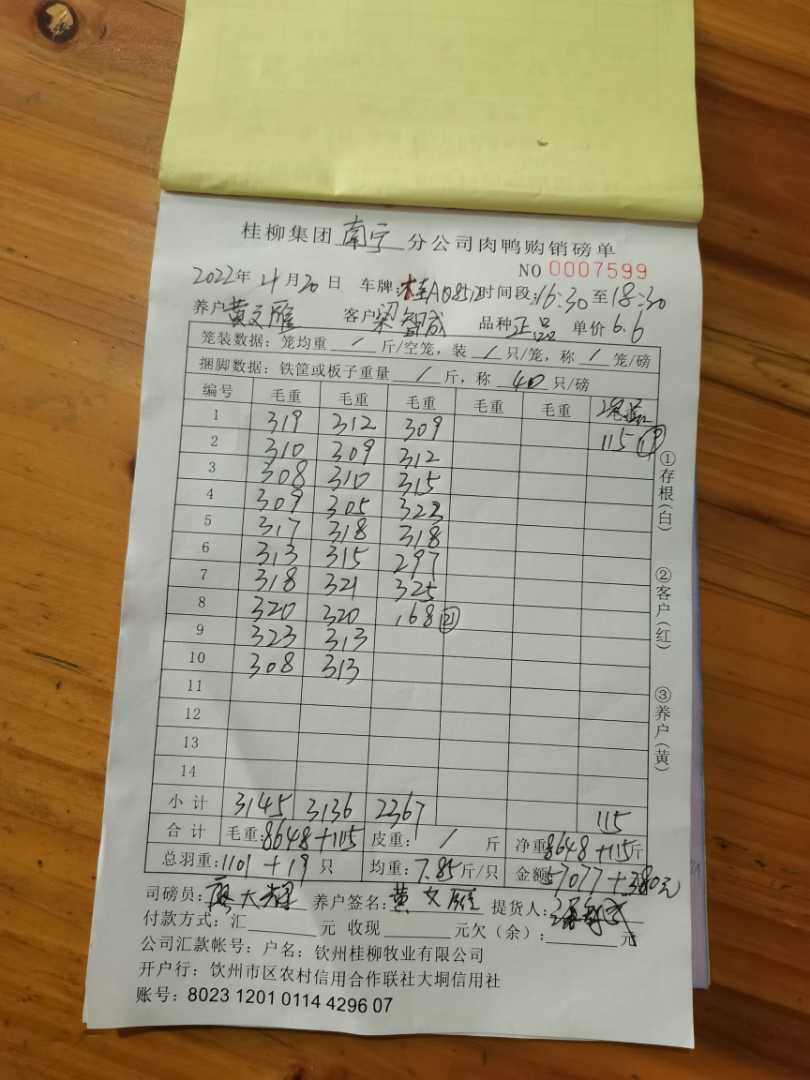 桂柳集团 南宁 分公司肉鸭购销磅单
NO 0007599
2022年 4月 20日 车牌:桂A08512 时间段:16:30 至 18:30
养户 黄文雁 客户 梁智成 品种 正品 单价 6.6
笼装数据：笼均重 / 斤/空笼，装 / 只/笼，称 / 笼/磅
捆脚数据：铁筐或板子重量 / 斤，称 40 只/磅
编号 毛重 毛重 毛重 毛重 毛重
1 319 312 309 115 ⑲
2 310 309 312
3 308 310 315
4 309 305 323
5 317 318 318
6 313 315 297
7 318 321 325
8 320 320 168 ㉑
9 323 313
10 308 313
11
12
13
14
小计 3145 3136 2367 115
合计 毛重:8648+115 皮重: / 斤 净重8648+115斤
总羽重:1101+19 只 均重:7.85斤/只 金额57077+380元
司磅员:廖大辉 养户签名:黄文雁 提货人:
付款方式：汇 元 收现 元欠（余）: 元
公司汇款帐号：户名：钦州桂柳牧业有限公司
开户行：钦州市区农村信用合作联社大垌信用社
账号：8023 1201 0114 4296 07
①存根(白) ②客户(红) ③养户(黄)